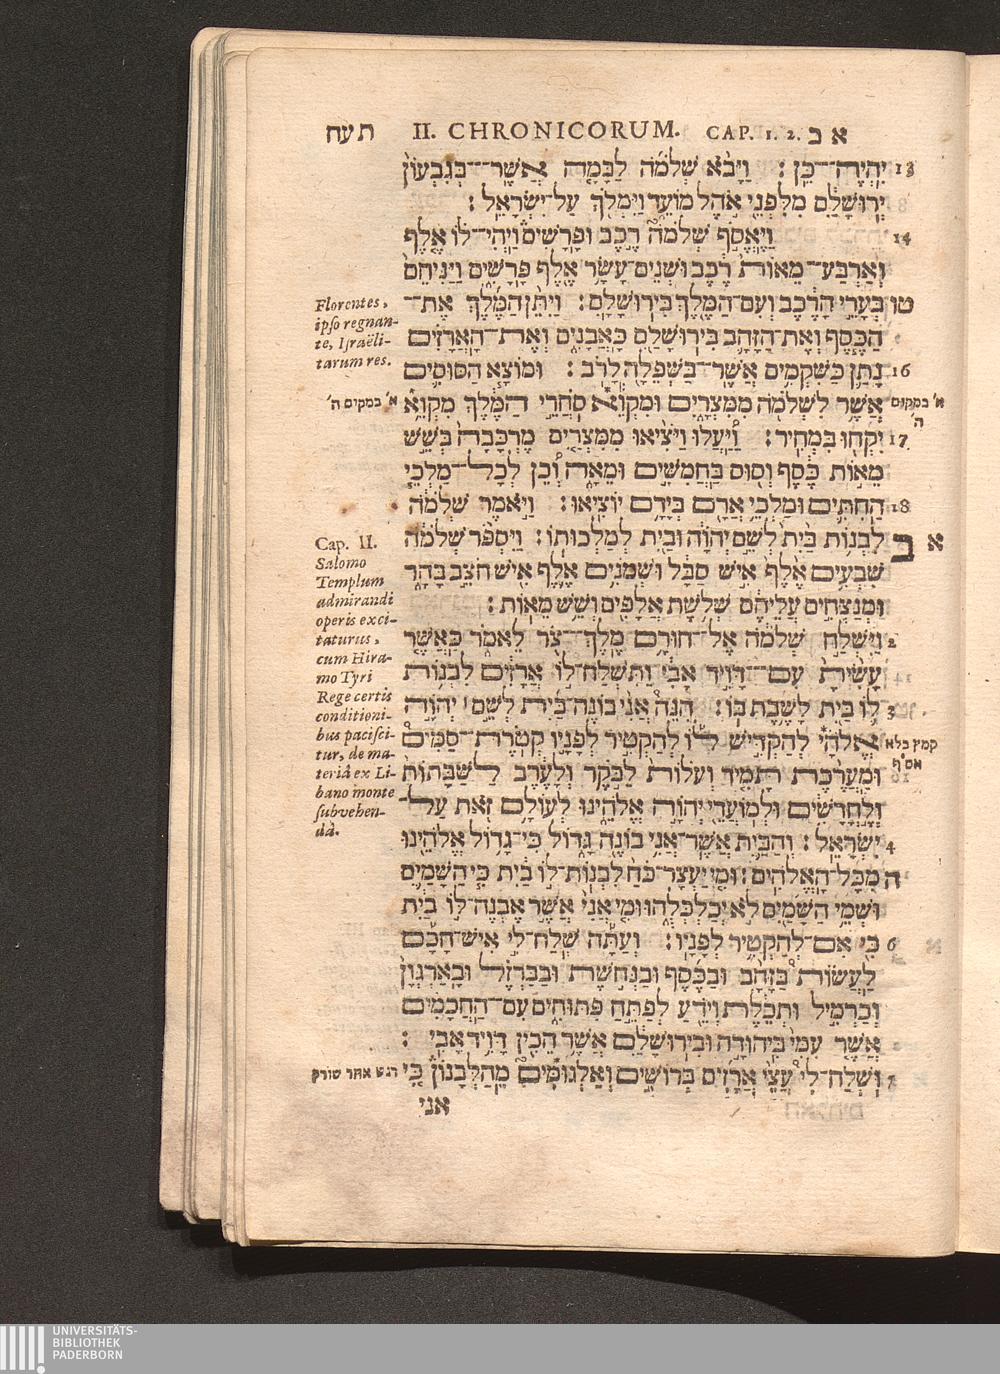 תעח II. CHRONICORUM. CAP. 1. 2. א ב
13 יִהְיֶה־כֵּן: וַיָּבֹא שְׁלֹמֹה לַבָּמָה אֲשֶׁר־בְּגִבְעוֹן
יְרוּשָׁלִַם מִלִּפְנֵי אֹהֶל מוֹעֵד וַיִּמְלֹךְ עַל־יִשְׂרָאֵל:
14 וַיֶּאֱסֹף שְׁלֹמֹה רֶכֶב וּפָרָשִׁים וַיְהִי־לוֹ אֶלֶף
וְאַרְבַּע־מֵאוֹת רֶכֶב וּשְׁנֵים־עָשָׂר אֶלֶף פָּרָשִׁים וַיַּנִּיחֵם
טו בְּעָרֵי הָרֶכֶב וְעִם־הַמֶּלֶךְ בִּירוּשָׁלִָם: וַיִּתֵּן הַמֶּלֶךְ אֶת־
הַכֶּסֶף וְאֶת־הַזָּהָב בִּירוּשָׁלִַם כָּאֲבָנִים וְאֵת־הָאֲרָזִים
16 נָתַן כַּשִּׁקְמִים אֲשֶׁר־בַּשְּׁפֵלָה לָרֹב: וּמוֹצָא הַסּוּסִים
אֲשֶׁר לִשְׁלֹמֹה מִמִּצְרָיִם וּמִקְוֵא סֹחֲרֵי הַמֶּלֶךְ מִקְוֵא
17 יִקְחוּ בִּמְחִיר: וַיַּעֲלוּ וַיֹּצִיאוּ מִמִּצְרַיִם מֶרְכָּבָה בְּשֵׁשׁ
מֵאוֹת כֶּסֶף וְסוּס בַּחֲמִשִּׁים וּמֵאָה וְכֵן לְכָל־מַלְכֵי
18 הַחִתִּים וּמַלְכֵי אֲרָם בְּיָדָם יוֹצִיאוּ: וַיֹּאמֶר שְׁלֹמֹה
א ב לִבְנוֹת בַּיִת לְשֵׁם יְהוָֹה וּבַיִת לְמַלְכוּתוֹ: וַיִּסְפֹּר שְׁלֹמֹה
שִׁבְעִים אֶלֶף אִישׁ סַבָּל וּשְׁמֹנִים אֶלֶף אִישׁ חֹצֵב בָּהָר
וּמְנַצְּחִים עֲלֵיהֶם שְׁלֹשֶׁת אֲלָפִים וְשֵׁשׁ מֵאוֹת:
2 וַיִּשְׁלַח שְׁלֹמֹה אֶל־חוּרָם מֶלֶךְ־צֹר לֵאמֹר כַּאֲשֶׁר
עָשִׂיתָ עִם־דָּוִיד אָבִי וַתִּשְׁלַח־לוֹ אֲרָזִים לִבְנוֹת
3 לוֹ בַיִת לָשֶׁבֶת בּוֹ: הִנֵּה אֲנִי בוֹנֶה־בַּיִת לְשֵׁם יְהוָֹה
אֱלֹהָי לְהַקְדִּישׁ לוֹ לְהַקְטִיר לְפָנָיו קְטֹרֶת־סַמִּים
וּמַעֲרֶכֶת תָּמִיד וְעֹלוֹת לַבֹּקֶר וְלָעֶרֶב לַשַּׁבָּתוֹת
וְלֶחֳדָשִׁים וּלְמוֹעֲדֵי יְהוָֹה אֱלֹהֵינוּ לְעוֹלָם זֹאת עַל־
4 יִשְׂרָאֵל: וְהַבַּיִת אֲשֶׁר־אֲנִי בוֹנֶה גָּדוֹל כִּי־גָדוֹל אֱלֹהֵינוּ
ה מִכָּל־הָאֱלֹהִים: וּמִי יַעֲצָר־כֹּחַ לִבְנוֹת־לוֹ בַיִת כִּי הַשָּׁמַיִם
וּשְׁמֵי הַשָּׁמַיִם לֹא יְכַלְכְּלֻהוּ וּמִי אֲנִי אֲשֶׁר אֶבְנֶה־לּוֹ בַיִת
6 כִּי אִם־לְהַקְטִיר לְפָנָיו: וְעַתָּה שְׁלַח־לִי אִישׁ־חָכָם
לַעֲשׂוֹת בַּזָּהָב וּבַכֶּסֶף וּבַנְּחֹשֶׁת וּבַבַּרְזֶל וּבָאַרְגְּוָן
וְכַרְמִיל וּתְכֵלֶת וְיֹדֵעַ לְפַתֵּחַ פִּתּוּחִים עִם־הַחֲכָמִים
אֲשֶׁר עִמִּי בִּיהוּדָה וּבִירוּשָׁלִַם אֲשֶׁר הֵכִין דָּוִיד אָבִי:
7 וּשְׁלַח־לִי עֲצֵי אֲרָזִים בְּרוֹשִׁים וְאַלְגּוּמִּים מֵהַלְּבָנוֹן כִּי
אני
Florentes,
ipso regnan-
te, Israëli-
tarum res.
א' במקום ה'
Cap. II.
Salomo
Templum
admirandi
operis exci-
taturus,
cum Hira-
mo Tyri
Rege certis
conditioni-
bus pacisci-
tur, de ma-
teriâ ex Li-
bano monte
subvehen-
dâ.
דגש אחר שורק
א' במקום
ה'
קמץ בלא
אס"ף
UNIVERSITÄTS-
BIBLIOTHEK
PADERBORN